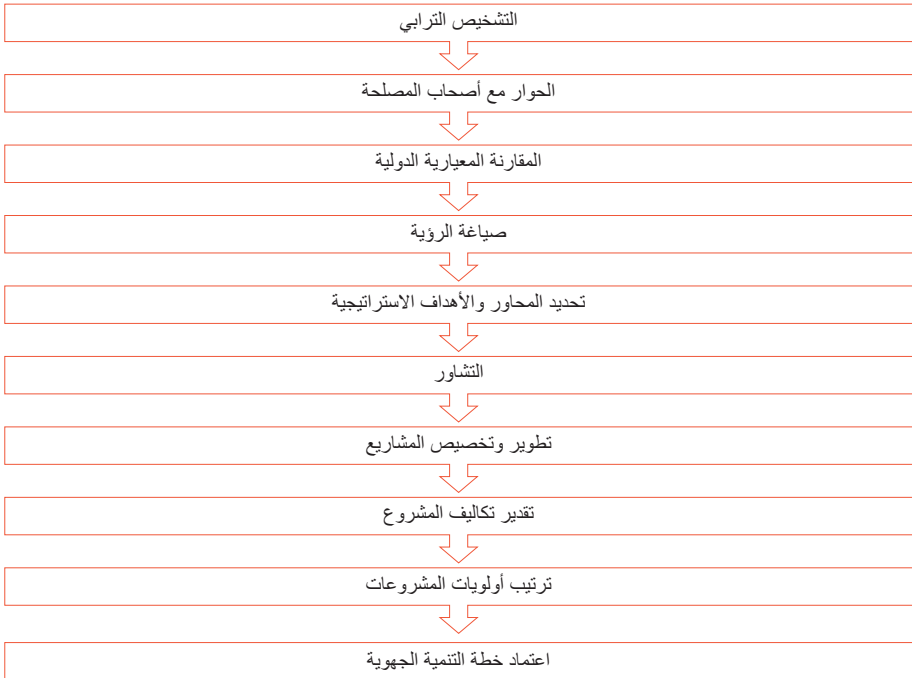 التشخيص الترابي
الحوار مع أصحاب المصلحة
المقارنة المعيارية الدولية
صياغة الرؤية
تحديد المحاور والأهداف الاستراتيجية
التشاور
تطوير وتخصيص المشاريع
تقدير تكاليف المشروع
ترتيب أولويات المشروعات
اعتماد خطة التنمية الجهوية